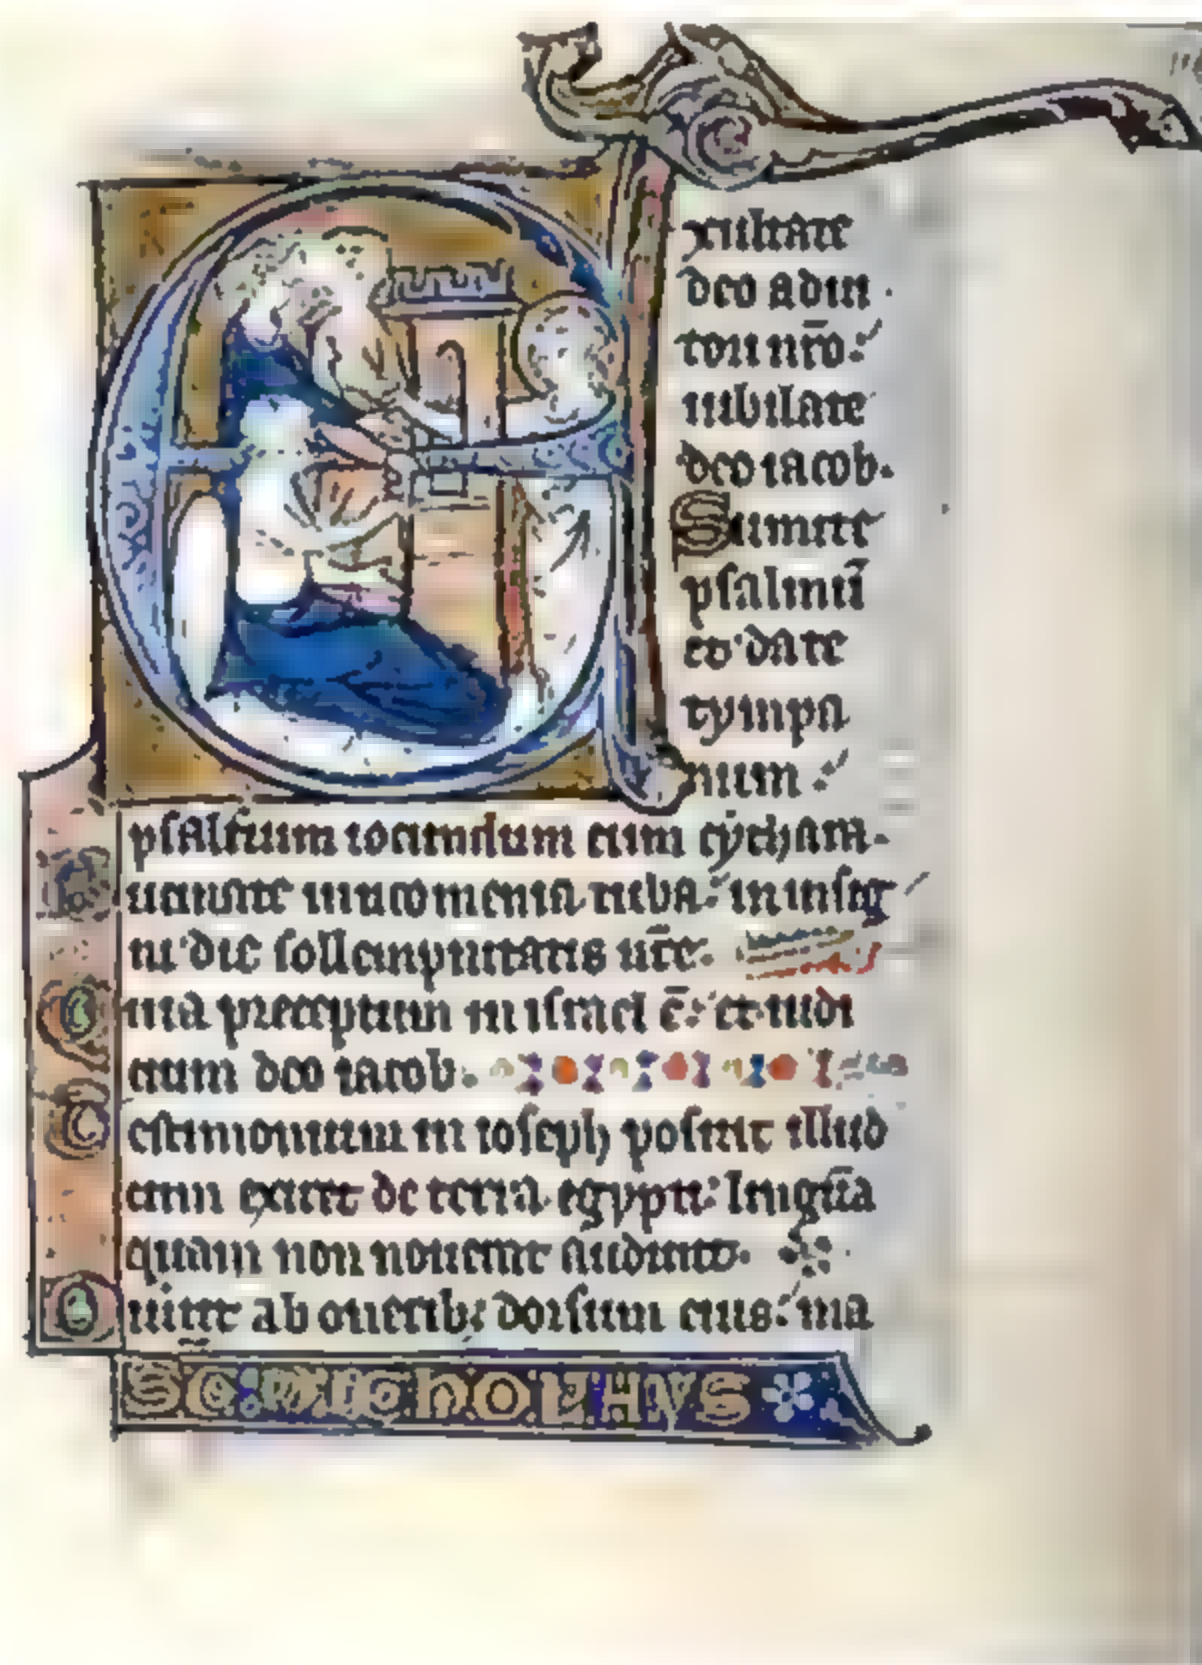 Exultate
deo adiu
tori nr̄o:
iubilate
deo iacob.
Sumite
psalmū
et date
tympa
num:
psalterium iocundum cum cythara.
Bucinate in neomenia tuba: in insig
ni die sollempnitatis ur̄e.
Quia preceptum in israel ē: et iudi
cium deo iacob.
Testimonium in ioseph posuit illud
cum exiret de terra egypti: linguā
quam non nouerat audiuit.
Diuertit ab onerib; dorsum eius: ma
SC: NICHOLAVS